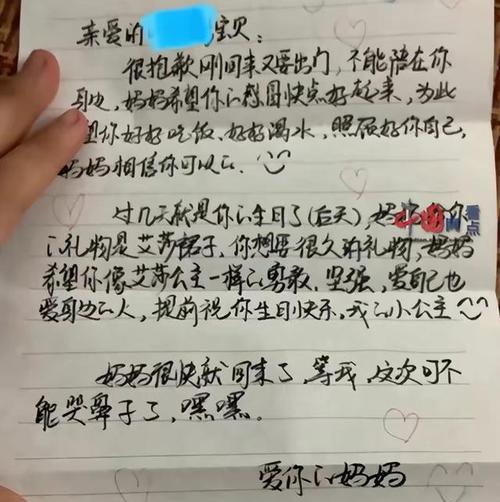 亲爱的 宝贝：
很抱歉刚回来又要出门，不能陪在你
身边，妈妈希望你的 快点好起来，为此
望你好好吃饭、好好喝水，照顾好你自己，
妈妈相信你可以的。
过几天就是你的生日了(后天)，妈 你
的礼物是艾莎裙子，你想要很久的礼物，妈妈
希望你像艾莎公主一样的勇敢、坚强，爱自己也
爱身边的人，提前祝你生日快乐，我的小公主
妈妈很快就回来了，等我，这次可不
能哭鼻子了，嘿嘿.
爱你的妈妈
看点